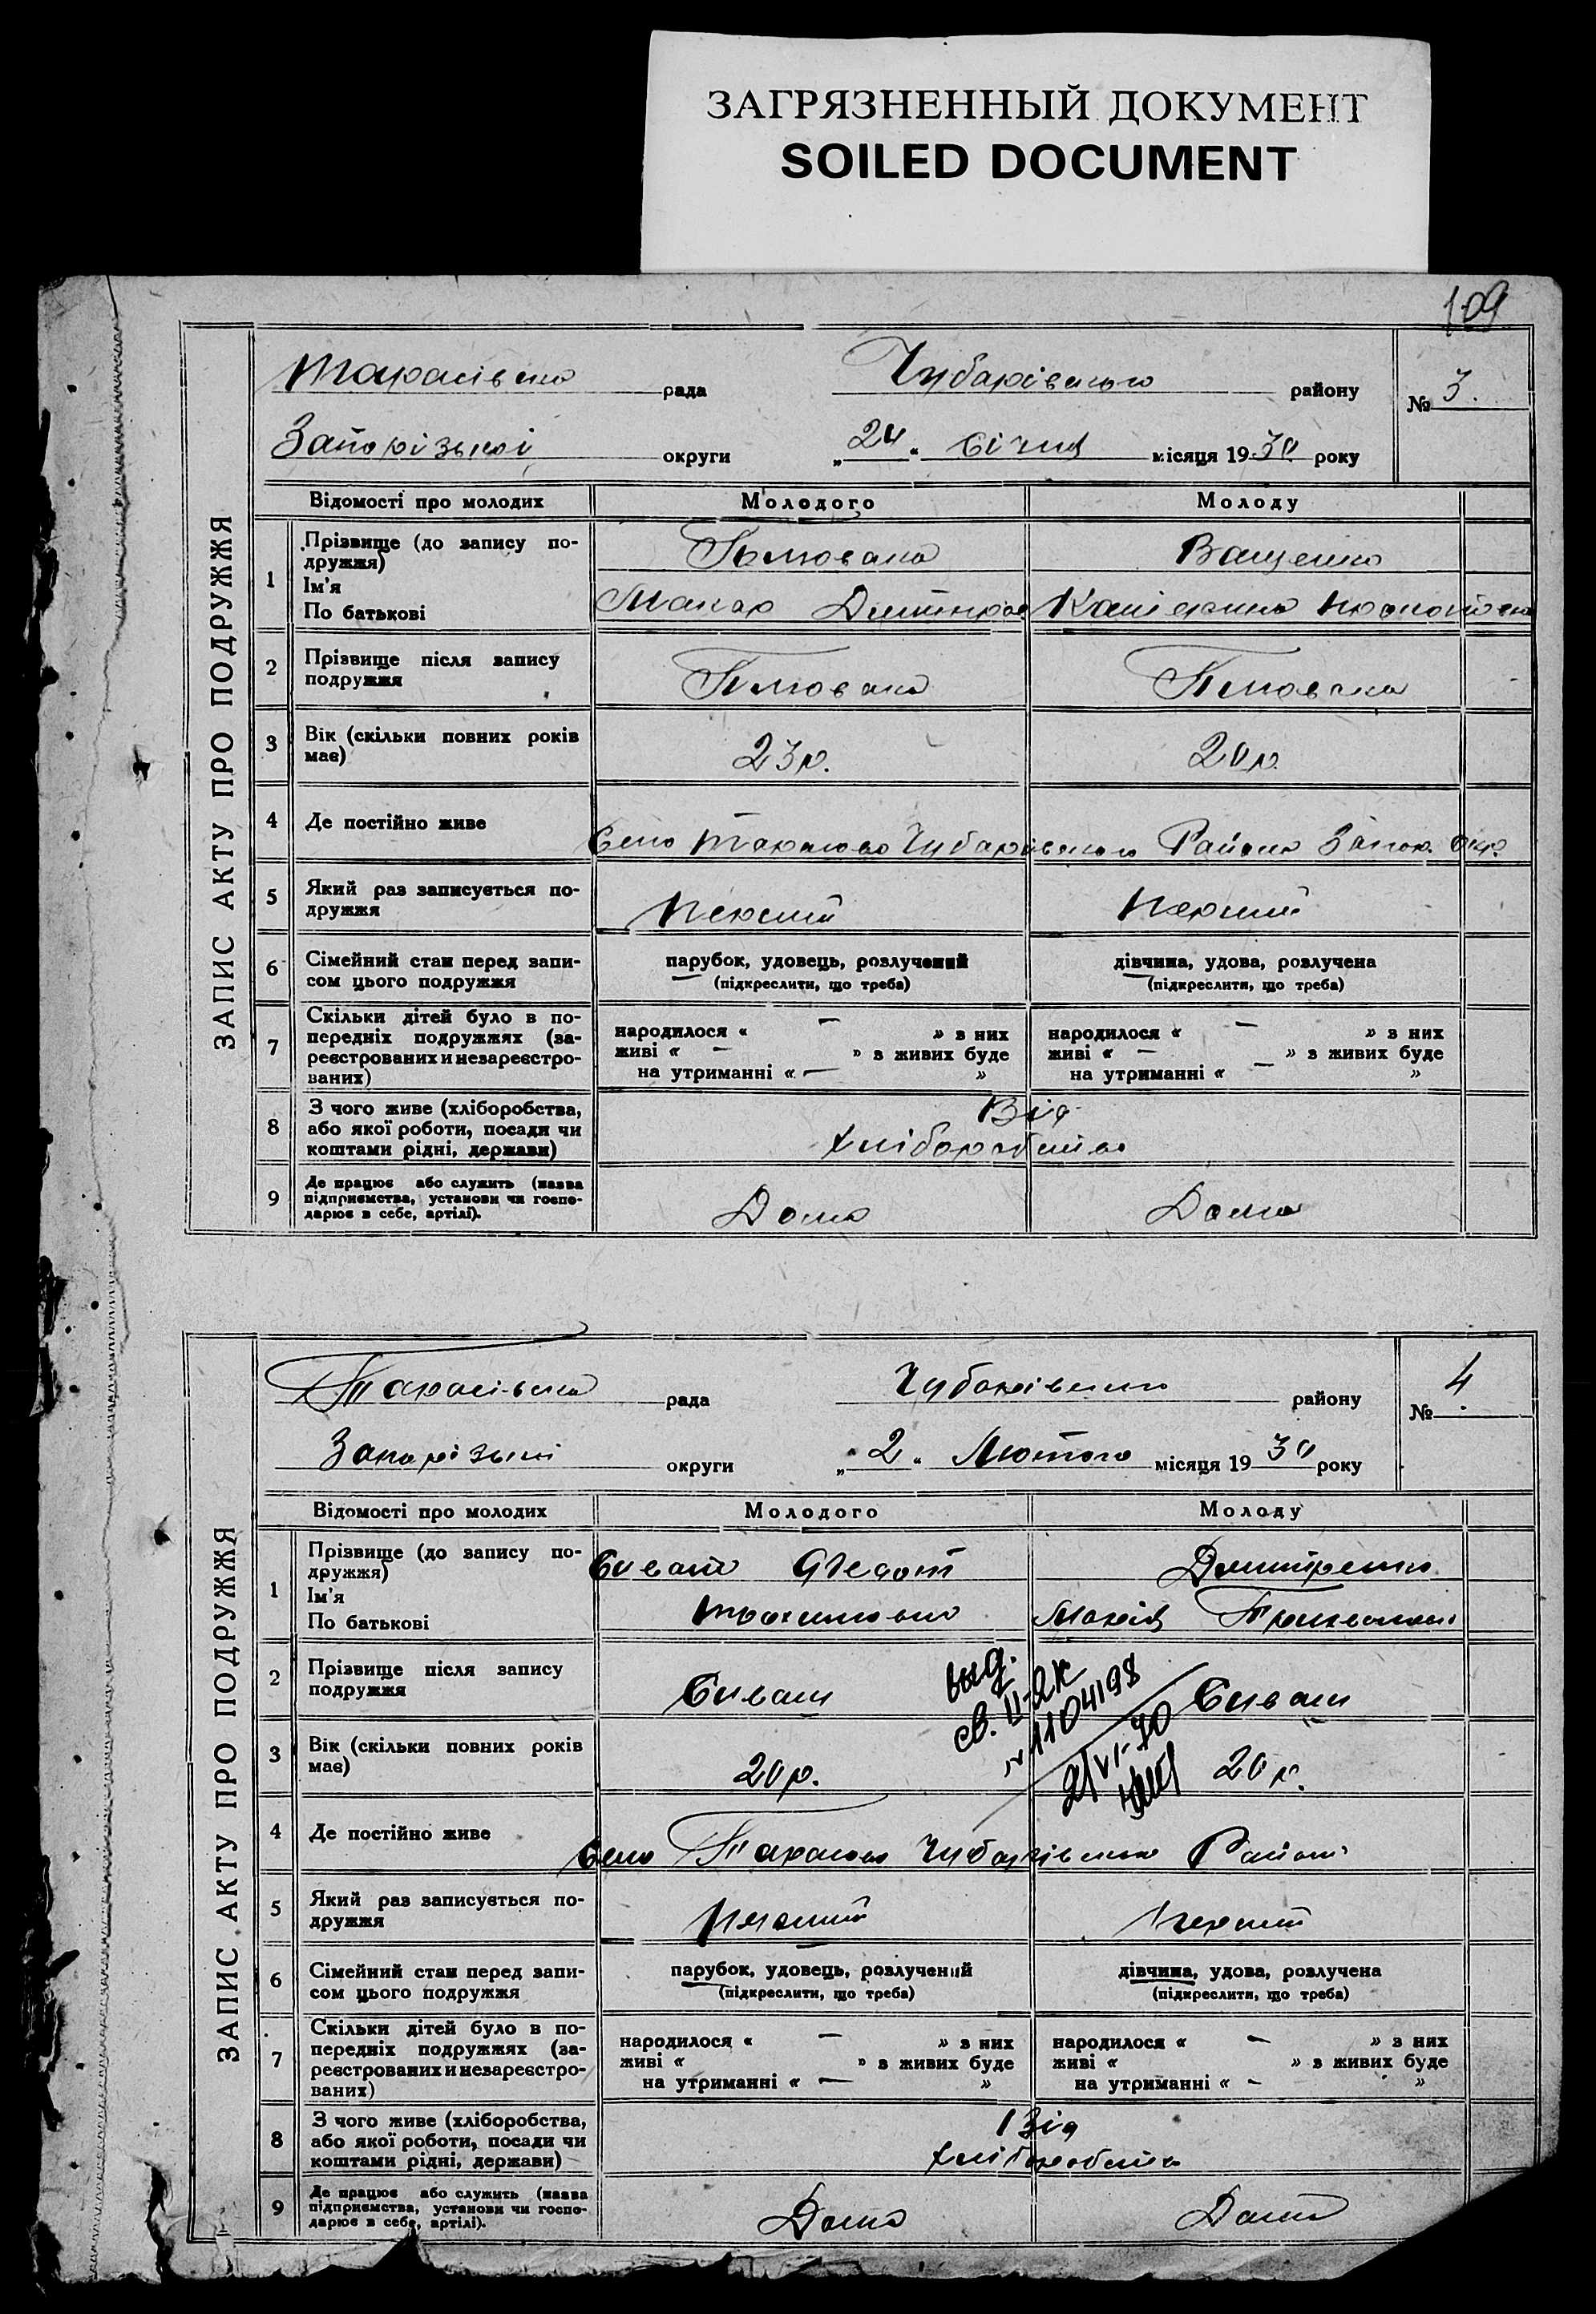 ЗАГРЯЗНЕННЫЙ ДОКУМЕНТ
SOILED DOCUMENT
109
ЗАПИС АКТУ ПРО ПОДРУЖЖЯ
Тарасівська рада Чубарівського району № 3.
Запорізької округи „24“ Січня місяця 1930 року
Відомості про молодих Молодого Молоду
1 Прізвище (до запису по-
дружжя)
Ім'я
По батькові
Ващенко
Макар Дмитров Катерина
2 Прізвище після запису
подружжя
3 Вік (скільки повних років
має)
23 р. 20 р.
4 Де постійно живе
Село Тарасово Чубарівського Району Запор. Окр.
5 Який раз записується по-
дружжя
Перший Перший
6 Сімейний стан перед запи-
сом цього подружжя
парубок, удовець, розлучений
(підкреслити, що треба)
дівчина, удова, розлучена
(підкреслити, що треба)
7 Скільки дітей було в по-
передніх подружжях (за-
реєстрованих и незареєстро-
ваних)
народилося « — » з них
живі « — » з живих буде
на утриманні « — »
народилося « — » з них
живі « — » з живих буде
на утриманні « — »
8 З чого живе (хліборобства,
або якої роботи, посади чи
коштами рідні, держави)
Від
хліборобства
9 Де працює або служить (назва
підприємства, установи чи госпо-
дарює в себе, артілі).
Дома Дома
ЗАПИС АКТУ ПРО ПОДРУЖЖЯ
Тарасівська рада Чубарівського району № 4.
Запорізької округи „2“ Лютого місяця 1930 року
Відомості про молодих Молодого Молоду
1 Прізвище (до запису по-
дружжя)
Ім'я
По батькові
Сиваш Федот Дмитренко
Марія
2 Прізвище після запису
подружжя
Сиваш Сиваш
выд.
св. II-ЯК
№ 1104198
21/VI-70
3 Вік (скільки повних років
має)
20 р. 20 р.
4 Де постійно живе
Село Тарасово Чубарівського Району
5 Який раз записується по-
дружжя
Перший Перший
6 Сімейний стан перед запи-
сом цього подружжя
парубок, удовець, розлучений
(підкреслити, що треба)
дівчина, удова, розлучена
(підкреслити, що треба)
7 Скільки дітей було в по-
передніх подружжях (за-
реєстрованих и незареєстро-
ваних)
народилося « — » з них
живі « » з живих буде
на утриманні « — »
народилося « — » з них
живі « » з живих буде
на утриманні « — »
8 З чого живе (хліборобства,
або якої роботи, посади чи
коштами рідні, держави)
Від
хліборобства
9 Де працює або служить (назва
підприємства, установи чи госпо-
дарює в себе, артілі).
Дома Дома